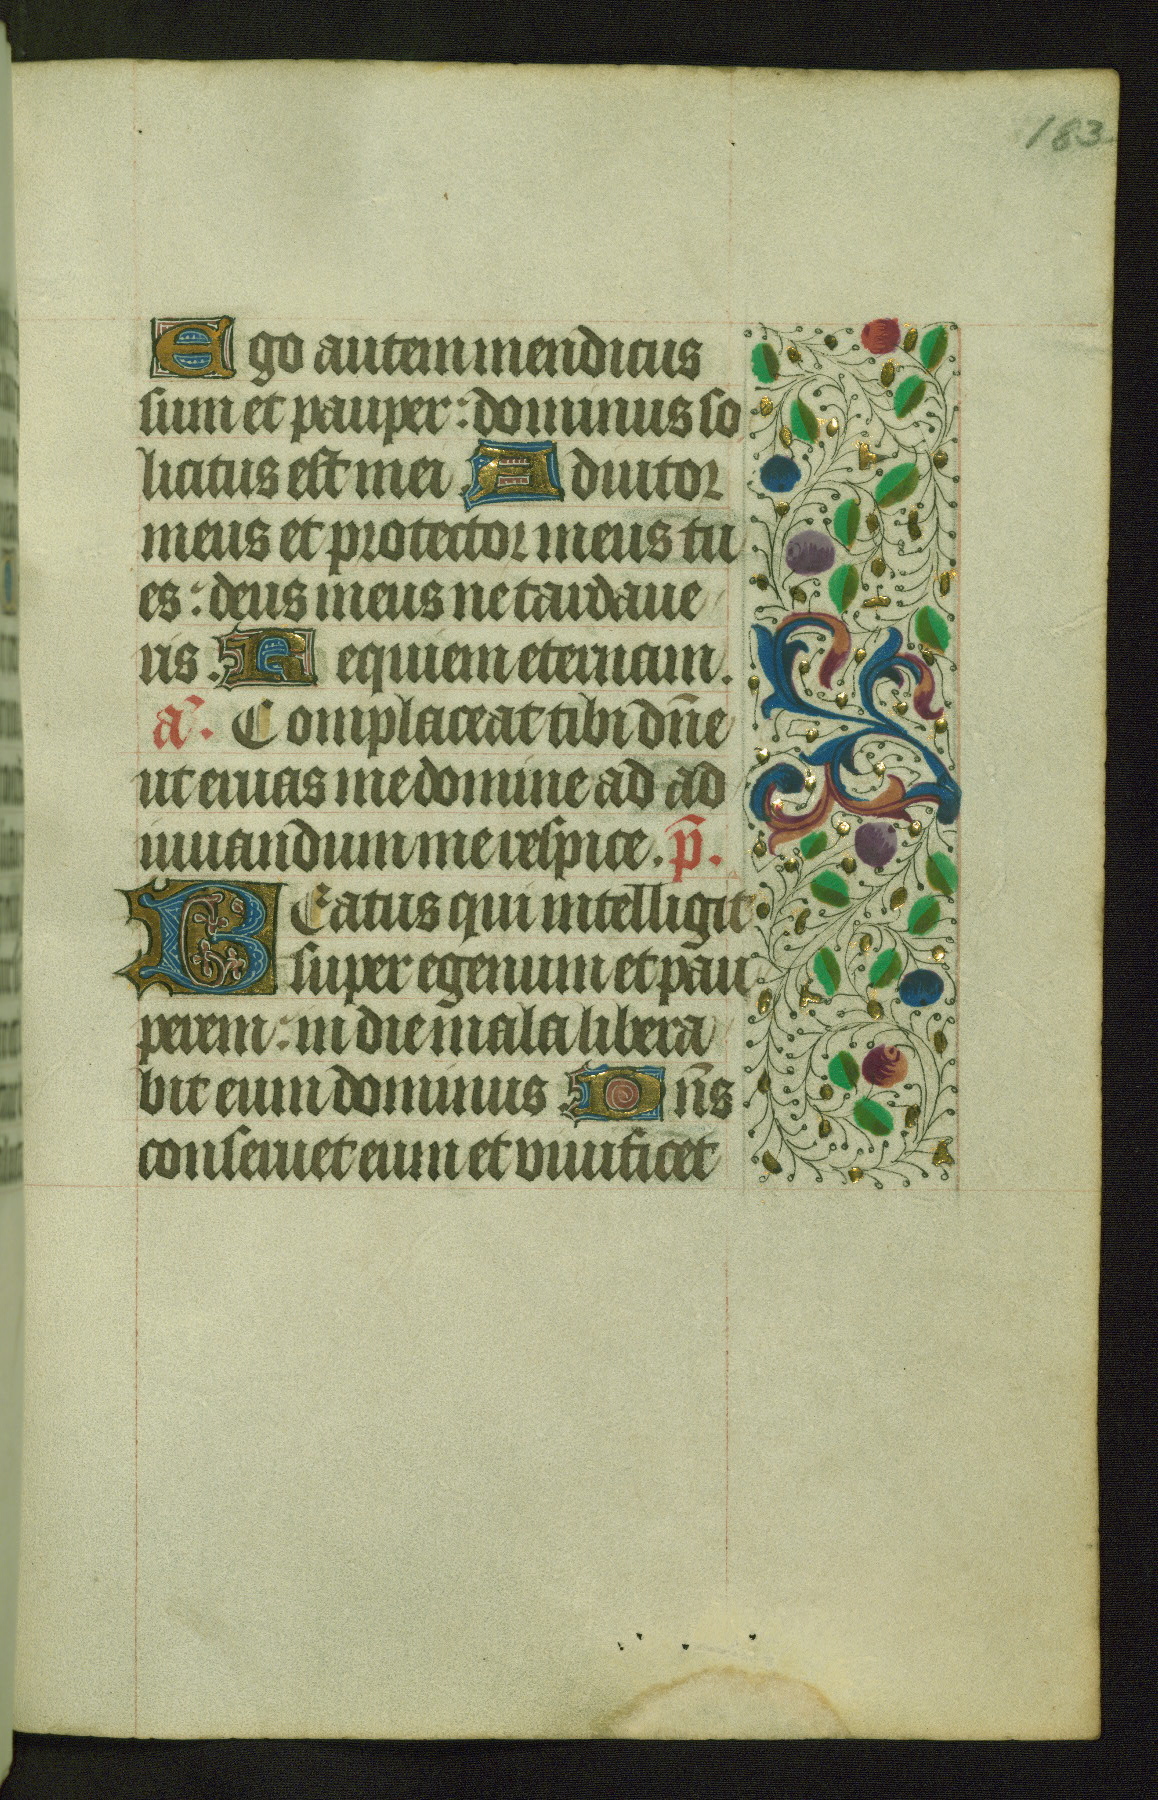 183
Ego autem mendicus
sum et pauper: dominus so
licitus est mei Adiutor
meus et protector meus tu
es: deus meus ne tardaue
ris. Requiem eternam.
a᷑. Complaceat tibi dn̄e
ut eruas me domine ad ad
iuuandum me respice. p̄.
BEatus qui intelligit
super egenum et pau
perem: in die mala libera
bit eum dominus Dn̄s
conseruet eum et viuificet